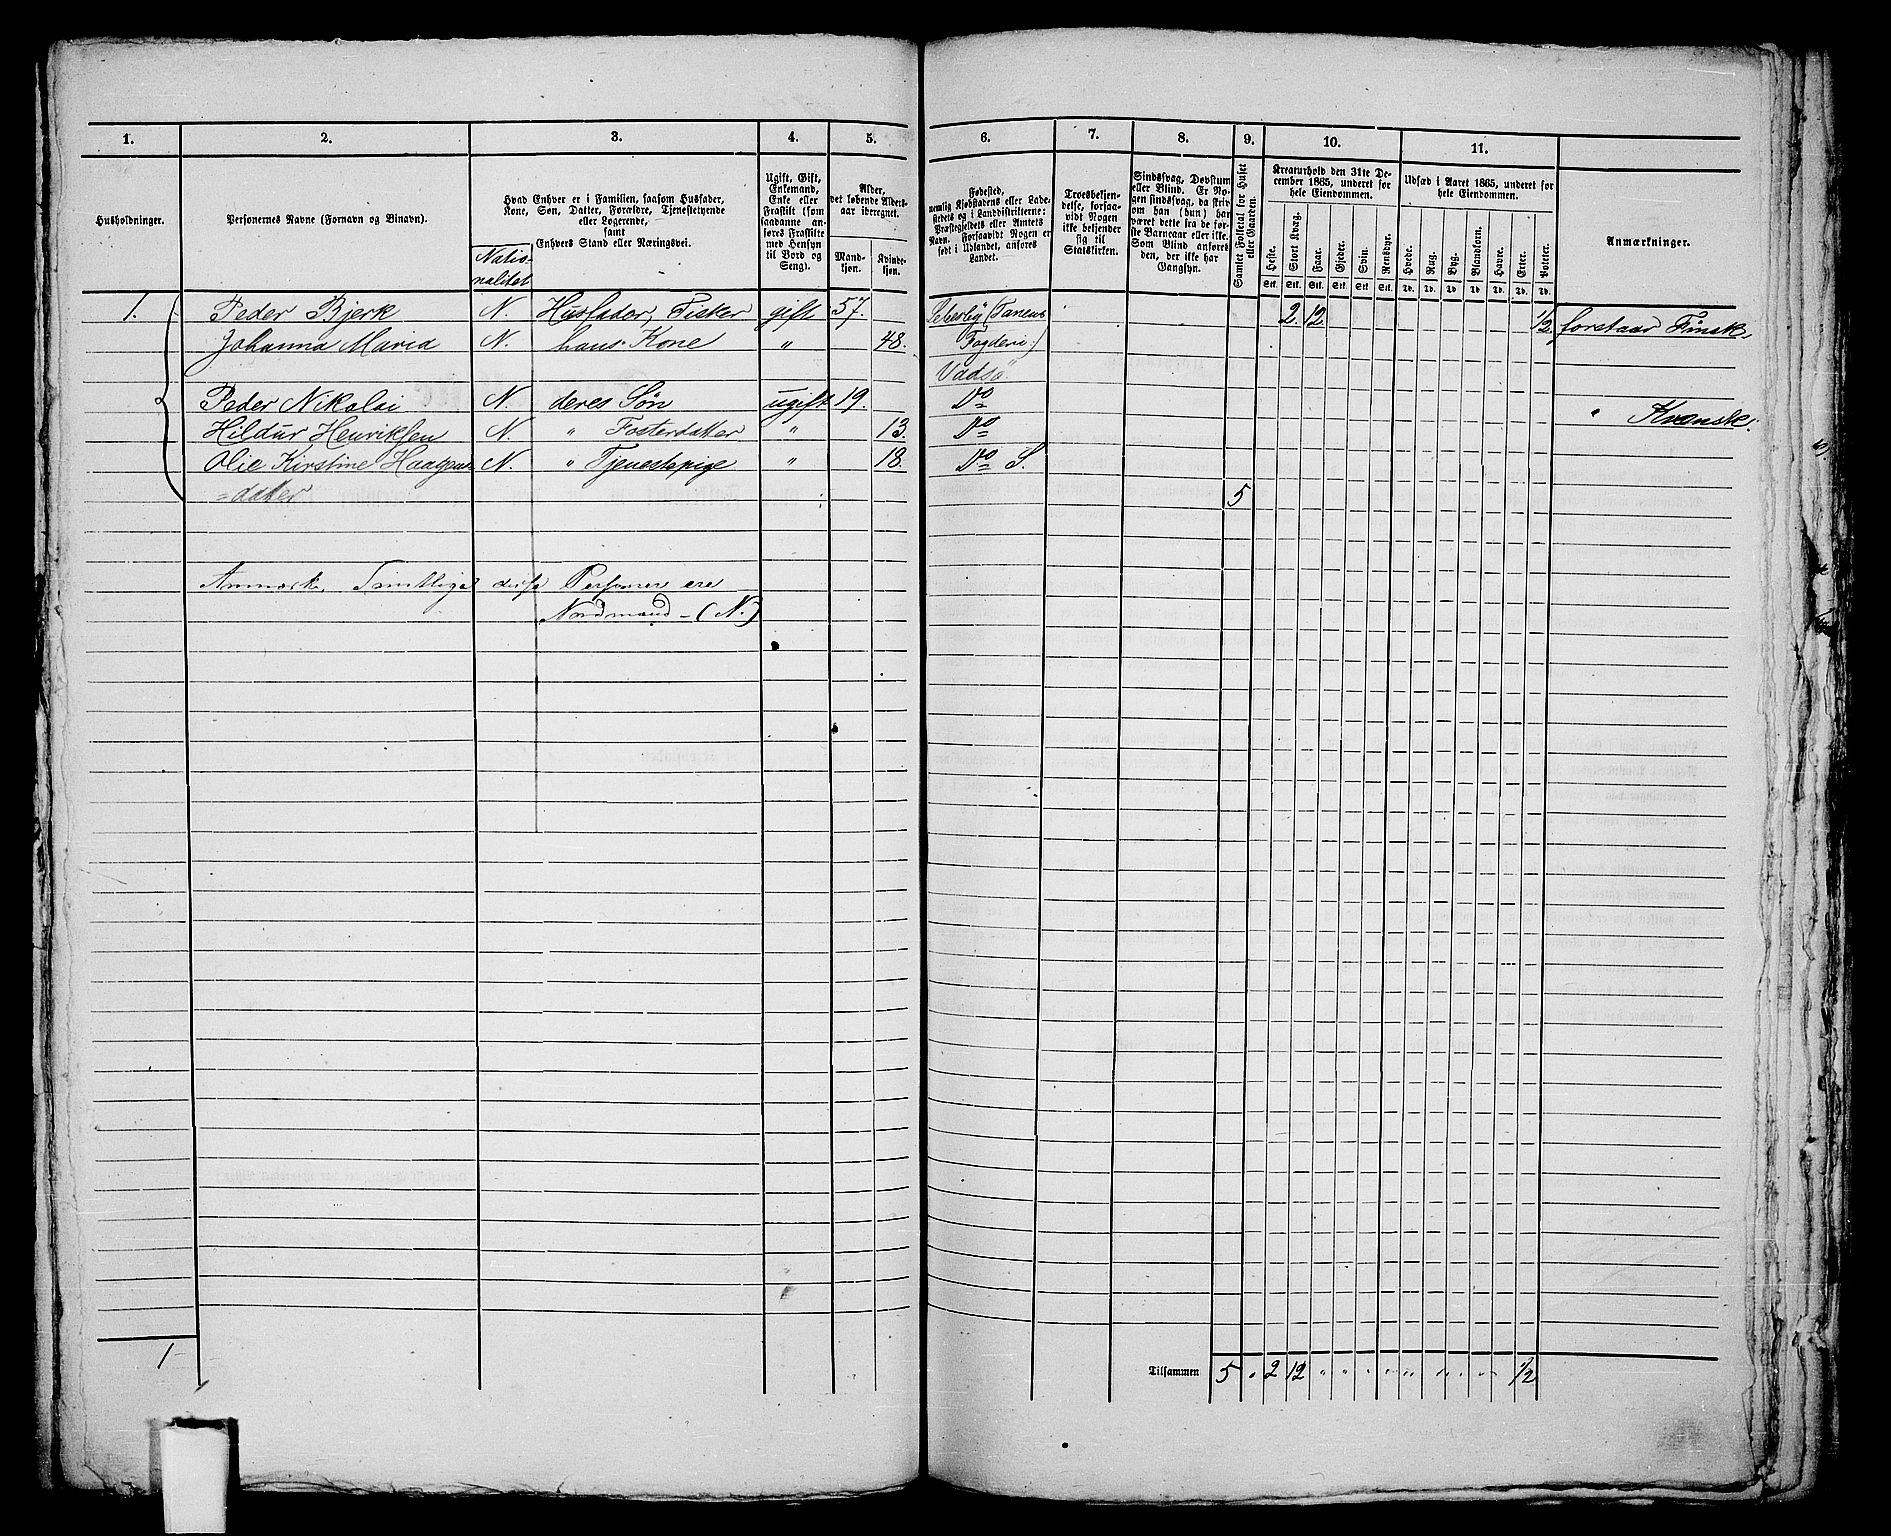 1. 2. 3. 4. 5. 6. 7. 8. 9. 10. 11.
Husholdninger.
Personernes Navne (Fornavn og Binavn).
Hvad Enhver er i Familien, saasom Husfader,
Kone, Søn, Datter, Forældre, Tjenestetyende
eller Logerende,
samt
Enhvers Stand eller Næringsvei.
Natio-
nalitet
Ugift, Gift,
Enkemand,
Enke eller
Fraskilt (som
saadanne an-
føres Fraskilte
med Hensyn
til Bord og
Seng).
Alder,
det løbende Alders-
aar iberegnet.
Mand-
kjøn.
Kvinde-
kjøn.
Fødested,
nemlig Kjøbstadens eller Lade-
stedets og i Landdistrikterne:
Præstegjeldets eller Amtets
Navn. Forsaavidt Nogen er
født i Udlandet, anføres
Landet.
Troesbekjen-
delse, forsaa-
vidt Nogen
ikke bekjender
sig til
Statskirken.
Sindssvag, Døvstum
eller Blind. Er No-
gen sindssvag, da skriv
om han (hun) har
været dette fra de før-
ste Barneaar eller ikke.
Som Blind anføres
den, der ikke har
Gangsyn.
Samlet Folketal for Huset
eller Gaarden.
Kreaturhold den 31te De-
cember 1865, underet for
hele Eiendommen.
Heste. Stort Kvæg. Faar. Gjeder. Svin. Rensdyr.
Stk. Stk. Stk. Stk. Stk. Stk.
Udsæd i Aaret 1865, underet for
hele Eiendommen.
Hvede. Rug. Byg. Blandkorn. Havre. Erter. Poteter.
Td. Td. Td. Td. Td. Td. Td.
Anmærkninger.
1. Peder Bjerk N. Husfader, Fisker gift 57. (Tanens 2. 12 1/2 forstaar Finsk.
Johanna Maria N. hans Kone " 48. Fogderi.)
Vadsö
Peder Nikolai N. deres Søn ugift 19. Do
Hildur Henriksen N. " Fosterdatter " 13. Do " Kvensk.
Olie Kirstine Haagens N. " Tjenestepige " 18. Do S.
=datter 5
Anmærk. Samtlige disse Personer ere
Nordmænd - (N.)
1
Tilsammen 5 " 2 12 " " " " " " " " " 1/2